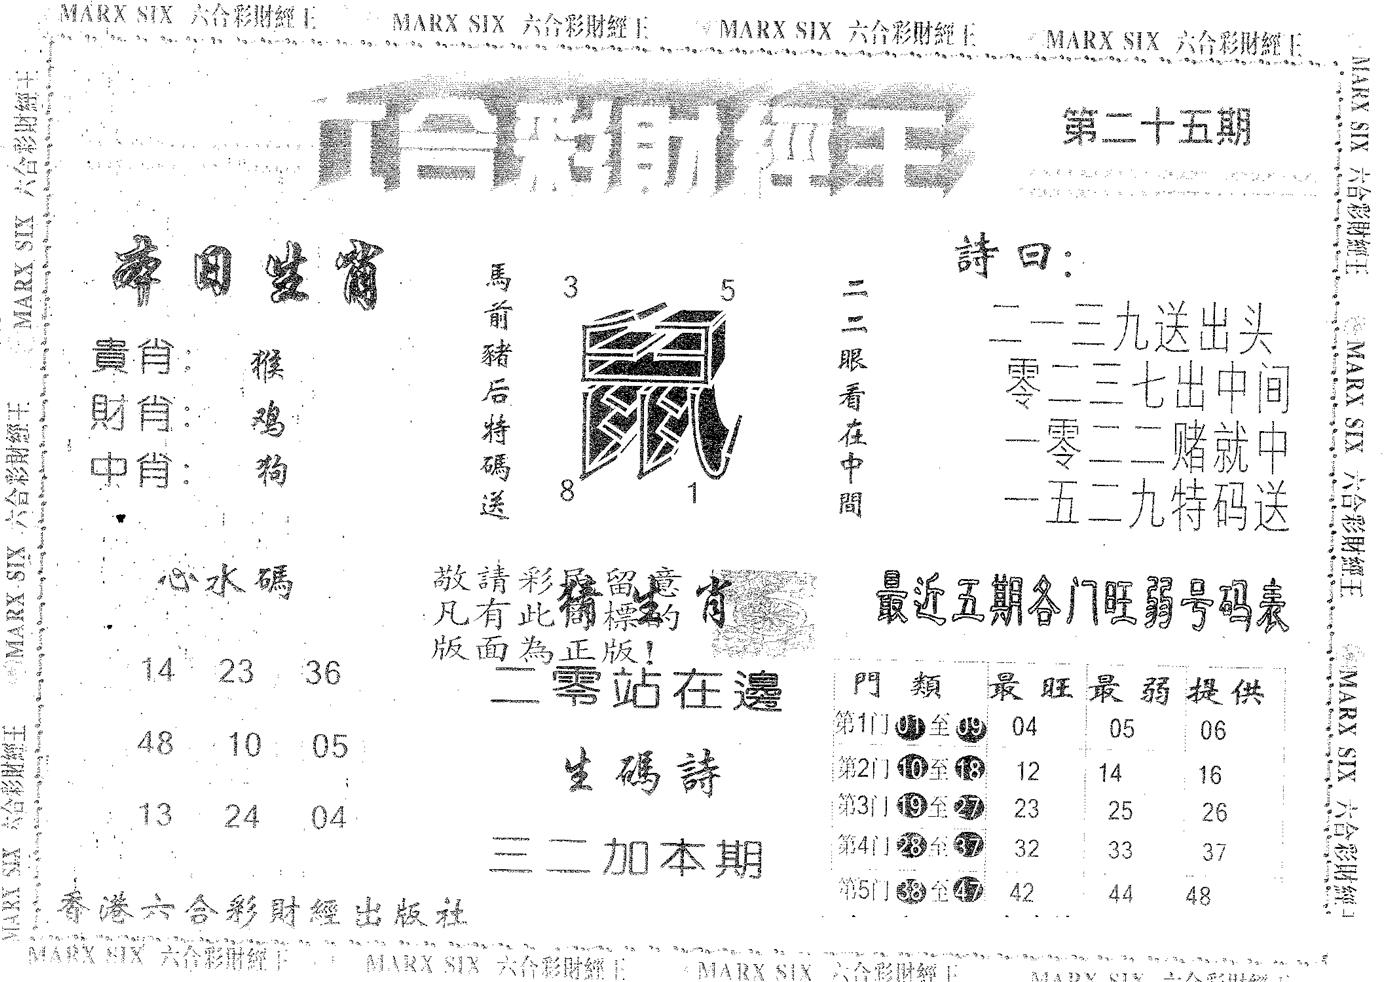 MARX SIX 六合彩財經王 MARX SIX 六合彩財經王 MARX SIX 六合彩財經王 MARX SIX 六合彩財經王
六合彩財經王
第二十五期
本日生肖
貴肖： 猴
財肖： 鸡
中肖： 狗
馬前豬后特碼送
3 5
鼠
8 1
二二眼看在中間
詩曰：
二一三九送出头
零二三七出中间
一零二二赌就中
一五二九特码送
心水碼
14 23 36
48 10 05
13 24 04
敬請彩民留意
凡有此商標的
版面為正版！
猜生肖
二零站在邊
生碼詩
三二加本期
最近五期各门旺弱号码表
門類 最旺 最弱 提供
第1门 01至09 04 05 06
第2门 10至18 12 14 16
第3门 19至27 23 25 26
第4门 28至37 32 33 37
第5门 38至47 42 44 48
香港六合彩財經出版社
MARX SIX 六合彩財經王 MARX SIX 六合彩財經王 MARX SIX 六合彩財經王 MARX SIX 六合彩財經
MARX SIX 六合彩財經王 MARX SIX 六合彩財經王 MARX SIX 六合彩財經王
MARX SIX 六合彩財經王 MARX SIX 六合彩財經王 MARX SIX 六合彩財經王